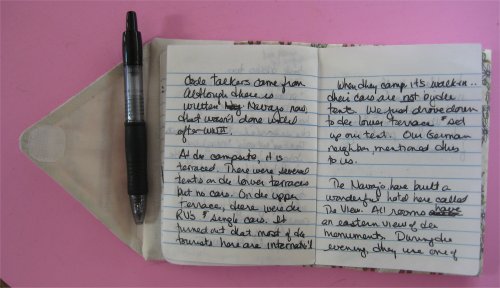 Code talkers came from
Although there is
written Navajo now,
that wasn't done until
after WWII.
At the campsite, it is
terraced. There were several
tents on the lower terraces
but no cars. On the upper
terrace, there were the
RVs & single cars. It
turned out that most of the
tourists here are internat'l
When they camp it's walk-in..
their cars are not by the
tent. We just drove down
to the lower terrace & set
up our tent. Our German
neighbor mentioned this
to us.
The Navajo have built a
wonderful hotel here called
The View. All rooms have
an eastern view of the
monuments. During the
evening, they use one of